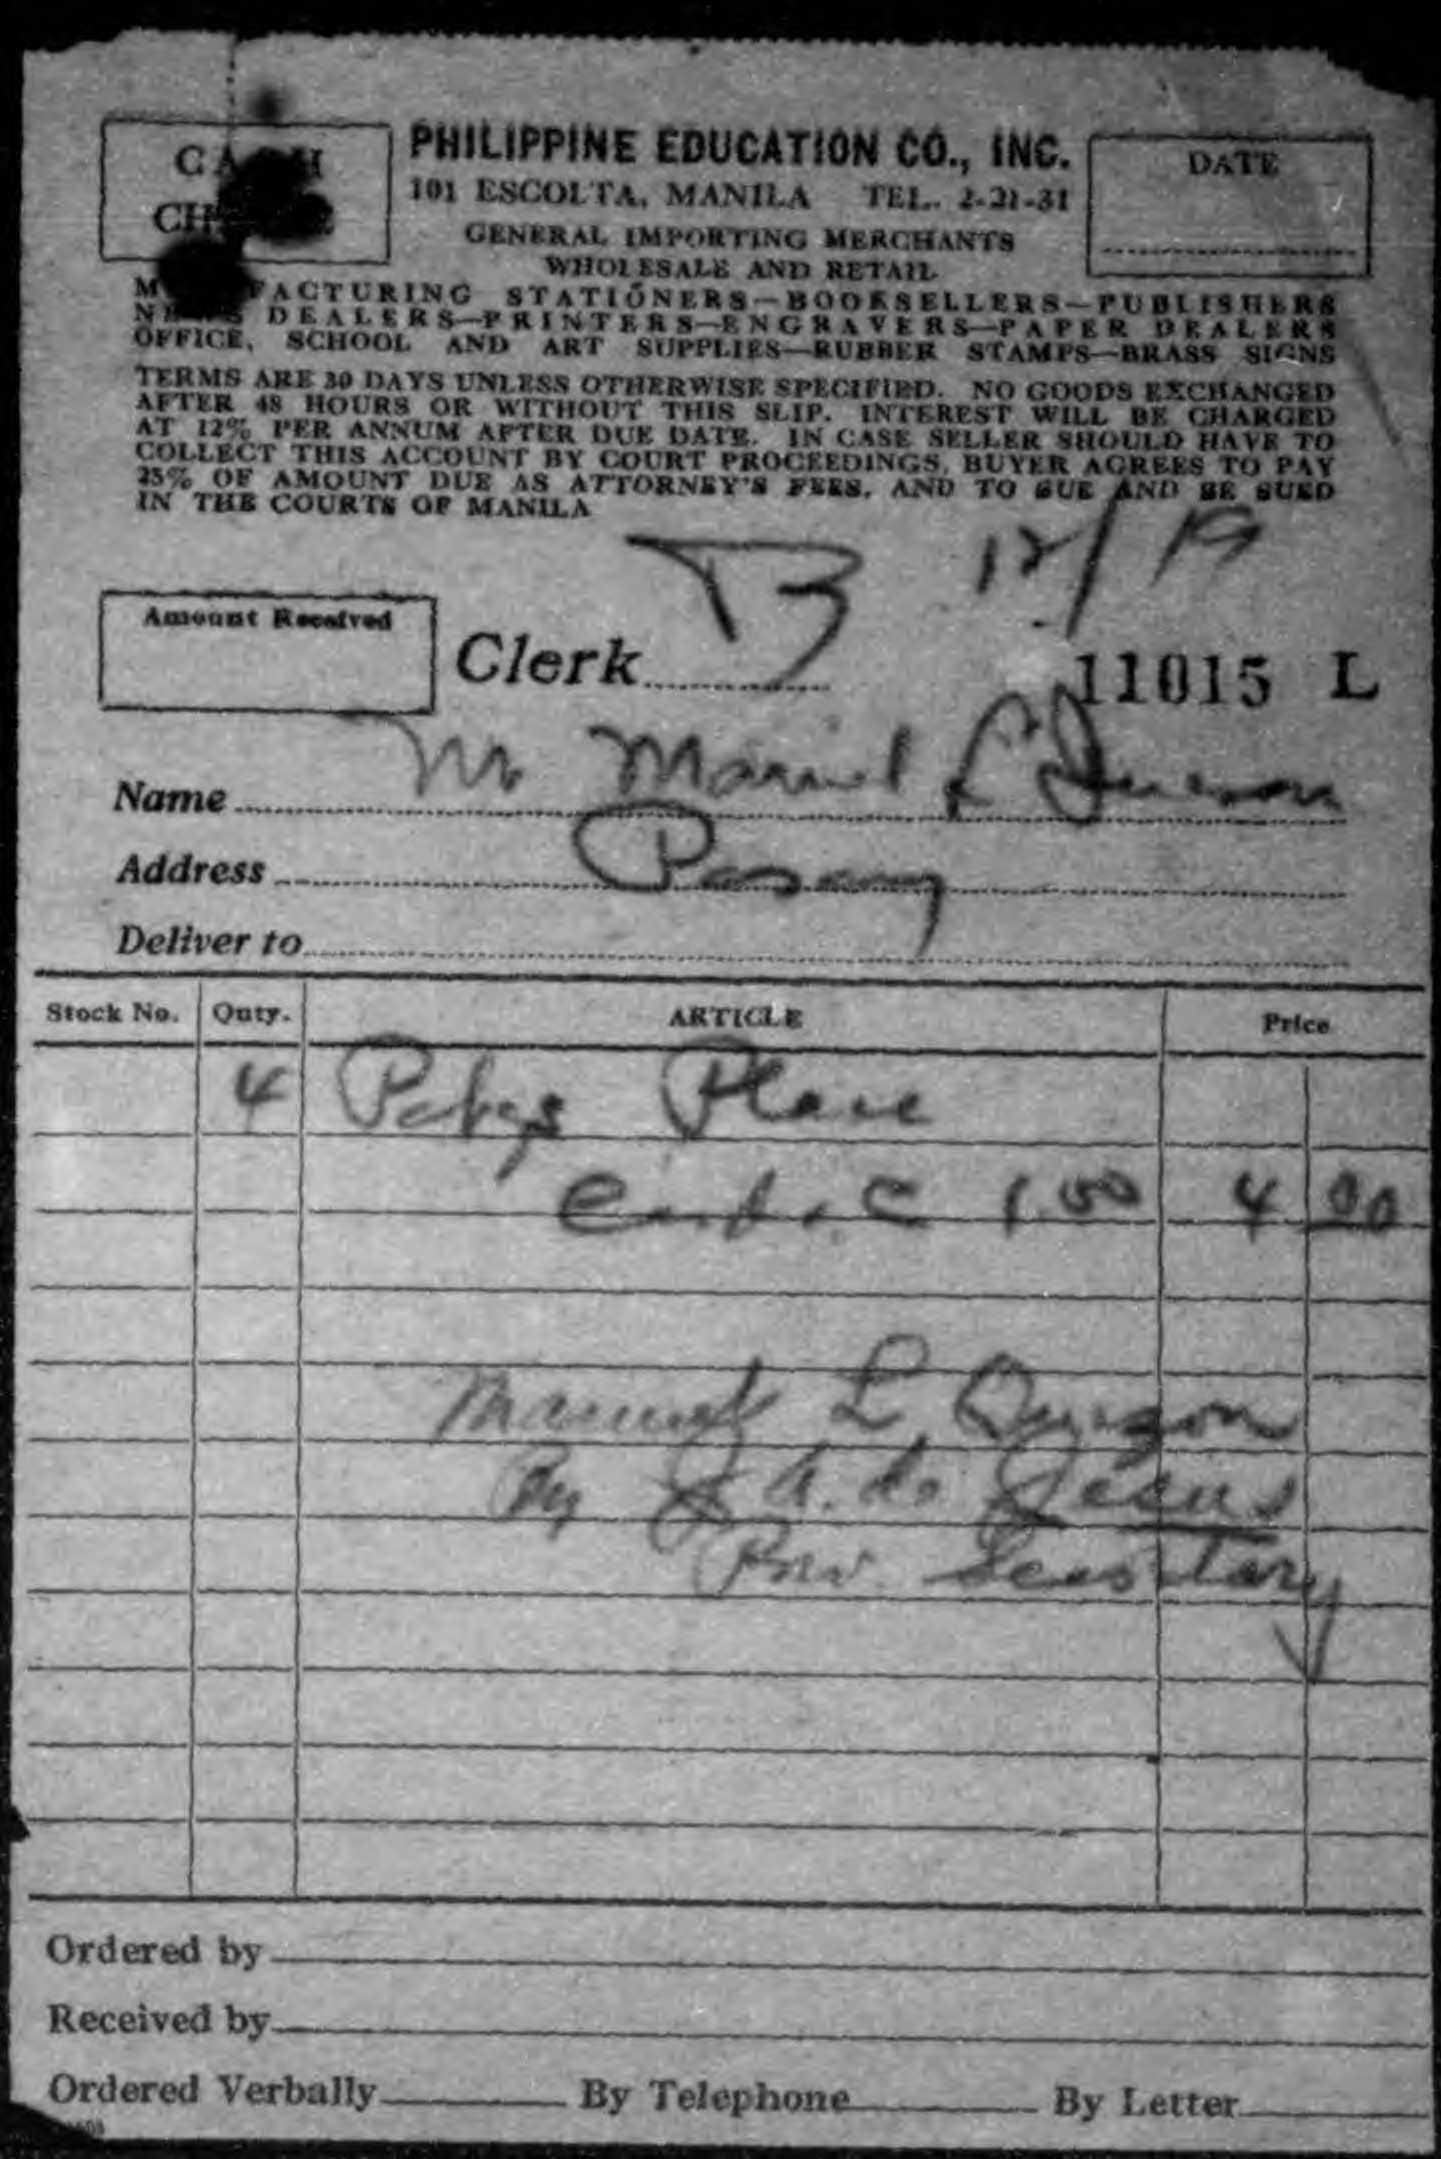 CASH
PHILIPPINE EDUCATION CO., INC.
DATE
101 ESCOLTA, MANILA TEL. 2-21-31
CHARGE
GENERAL IMPORTING MERCHANTS
WHOLESALE AND RETAIL
MANUFACTURING STATIONERS—BOOKSELLERS—PUBLISHERS
NEWS DEALERS—PRINTERS—ENGRAVERS—PAPER DEALERS
OFFICE, SCHOOL AND ART SUPPLIES—RUBBER STAMPS—BRASS SIGNS
TERMS ARE 30 DAYS UNLESS OTHERWISE SPECIFIED. NO GOODS EXCHANGED
AFTER 48 HOURS OR WITHOUT THIS SLIP. INTEREST WILL BE CHARGED
AT 12% PER ANNUM AFTER DUE DATE. IN CASE SELLER SHOULD HAVE TO
COLLECT THIS ACCOUNT BY COURT PROCEEDINGS, BUYER AGREES TO PAY
25% OF AMOUNT DUE AS ATTORNEY'S FEES, AND TO SUE AND BE SUED
IN THE COURTS OF MANILA
12/19
Amount Received
Clerk
11015 L
Name Mr Manuel L Quezon
Address Pasay
Deliver to
Stock No. Quty. ARTICLE Price
4 Pckgs Place
Card 1.00 4 00
Manuel L Quezon
By A. de Jesus
Priv. Secretary
Ordered by
Received by
Ordered Verbally By Telephone By Letter